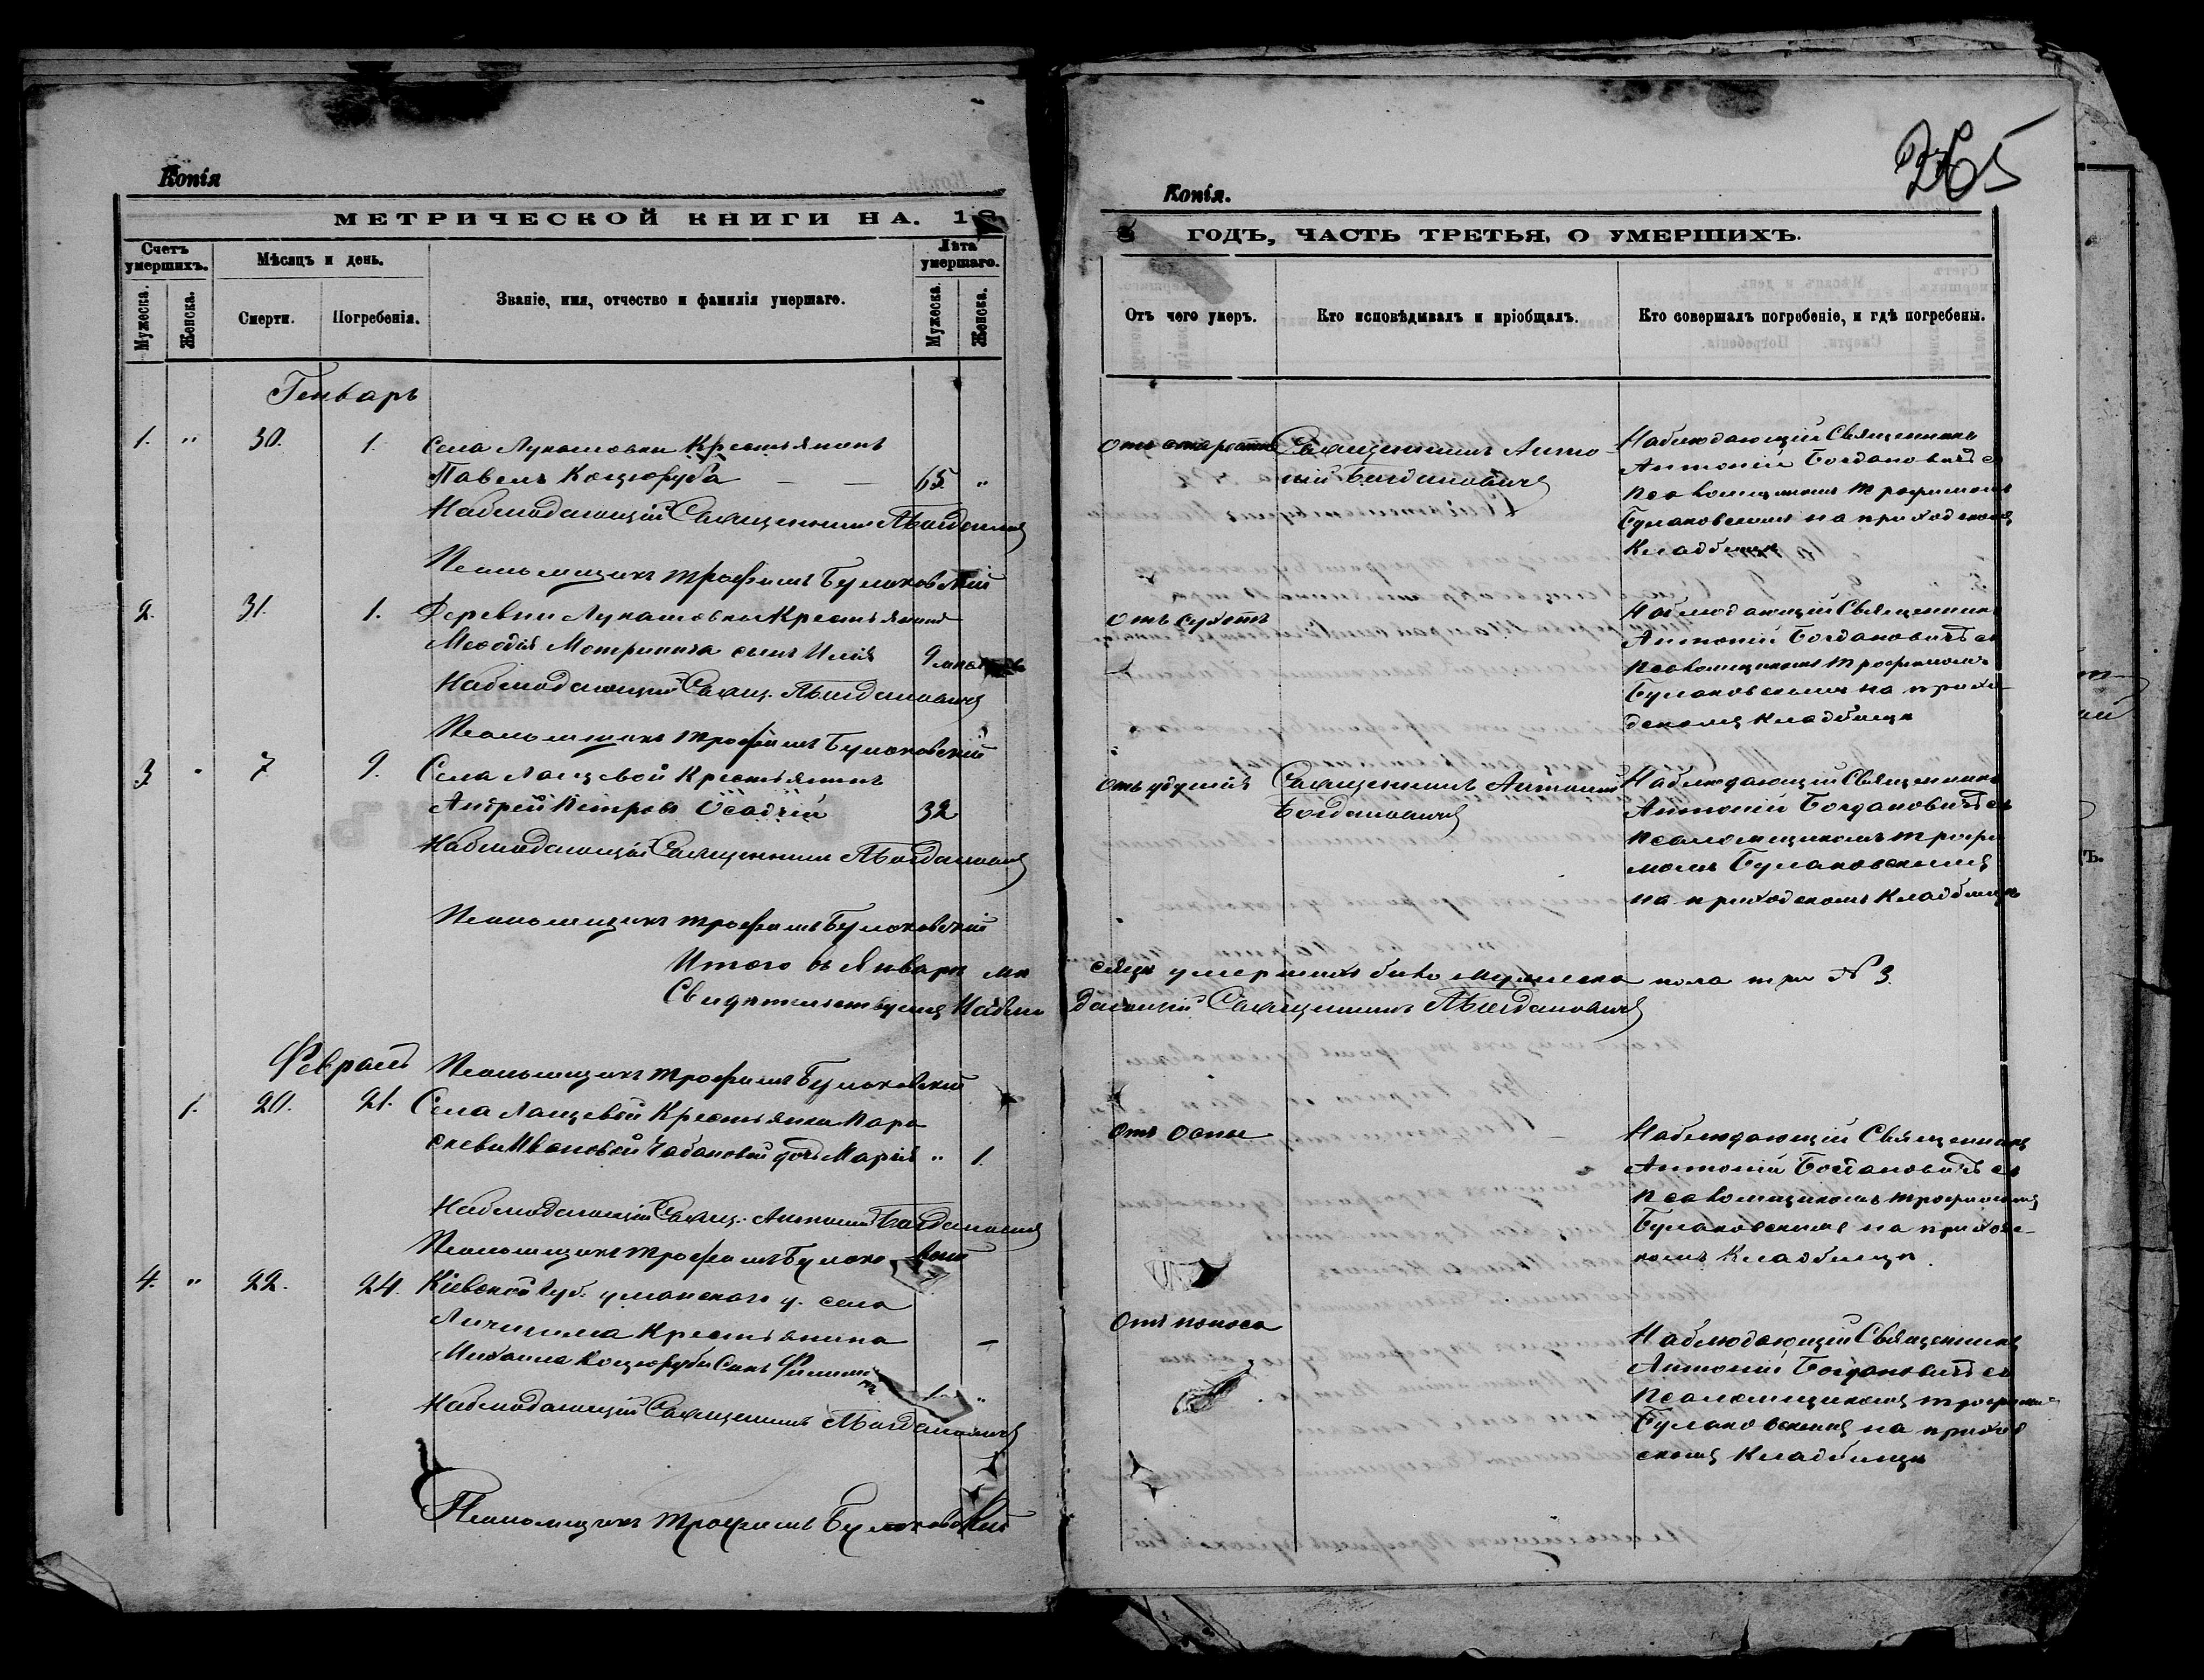 Копія
МЕТРИЧЕСКОЙ КНИГИ НА. 18
Счетъ умершихъ.
Мѣсяцъ и день.
Званіе, имя, отчество и фамилія умершаго.
Лѣта умершаго.
Мужеска.
Женска.
Смерти.
Погребенія.
Мужеска.
Женска.
Генварь
1. " 30. 1. Села Лукашовки Крестьянинъ
Павелъ Коцюруба — — 65. "
Наблюдающій Священникъ А Богдановичъ
Псаломщикъ Трофимъ Булаковскій
2. 31. 1. Деревни Лукашовки Крестьянина
сынъ Илія 9
Наблюдающій Свящ. А Богдановичъ
Псаломщикъ Трофимъ Булаковскій
3 " 7 9. Села Крестьянинъ
Андрей Петровъ Осадчій 32
Наблюдающій Священникъ А Богдановичъ
Псаломщикъ Трофимъ Булаковскій
Итого въ Январѣ мѣ
Свидѣтельствуемъ Наблю
Февраль
Псаломщикъ Трофимъ Булаковскій
1. 20. 21. Села Крестьянки Пара
скевы Ивановой Чабановой дочь Марія " 1.
Наблюдающій Свящ. Антоній Богдановичъ
Псаломщикъ Трофимъ Булаковскій
4. " 22. 24. Кіевской губ. уманскаго у. села
Крестьянина —
Михаила Коцюрубы Сынъ 1 "
Наблюдающій Священникъ А Богдановичъ
Псаломщикъ Трофимъ Булаковскій
265
Копія.
ГОДЪ, ЧАСТЬ ТРЕТЬЯ, О УМЕРШИХЪ.
Отъ чего умеръ.
Кто исповѣдывалъ и пріобщалъ.
Кто совершалъ погребеніе, и гдѣ погребены.
Отъ старости
Священникъ Анто
ній Богдановичъ
Наблюдающій Священникъ
Антоній Богдановичъ съ
псаломщикомъ Трофимомъ
Булаковскимъ на приходскомъ
Кладбищѣ
Отъ сухотъ
Наблюдающій Священникъ
Антоній Богдановичъ съ
псаломщикомъ Трофимомъ
Булаковскимъ на прихо
дскомъ кладбищѣ
Отъ
Священникъ Антоній
Богдановичъ
Наблюдающій Священникъ
Антоній Богдановичъ съ
псаломщикомъ Трофи
момъ Булаковскимъ
на приходскомъ Кладбищѣ
сяцѣ умершихъ было мужеска пола три № 3.
дающій Священникъ А Богдановичъ
Отъ оспы
Наблюдающій Священникъ
Антоній Богдановичъ съ
псаломщикомъ Трофимомъ
Булаковскимъ на приход-
комъ Кладбищѣ
Отъ поноса
Наблюдающій Священникъ
Антоній Богдановичъ съ
псаломщикомъ Трофимо
Булаковскимъ на приход
скомъ Кладбищѣ